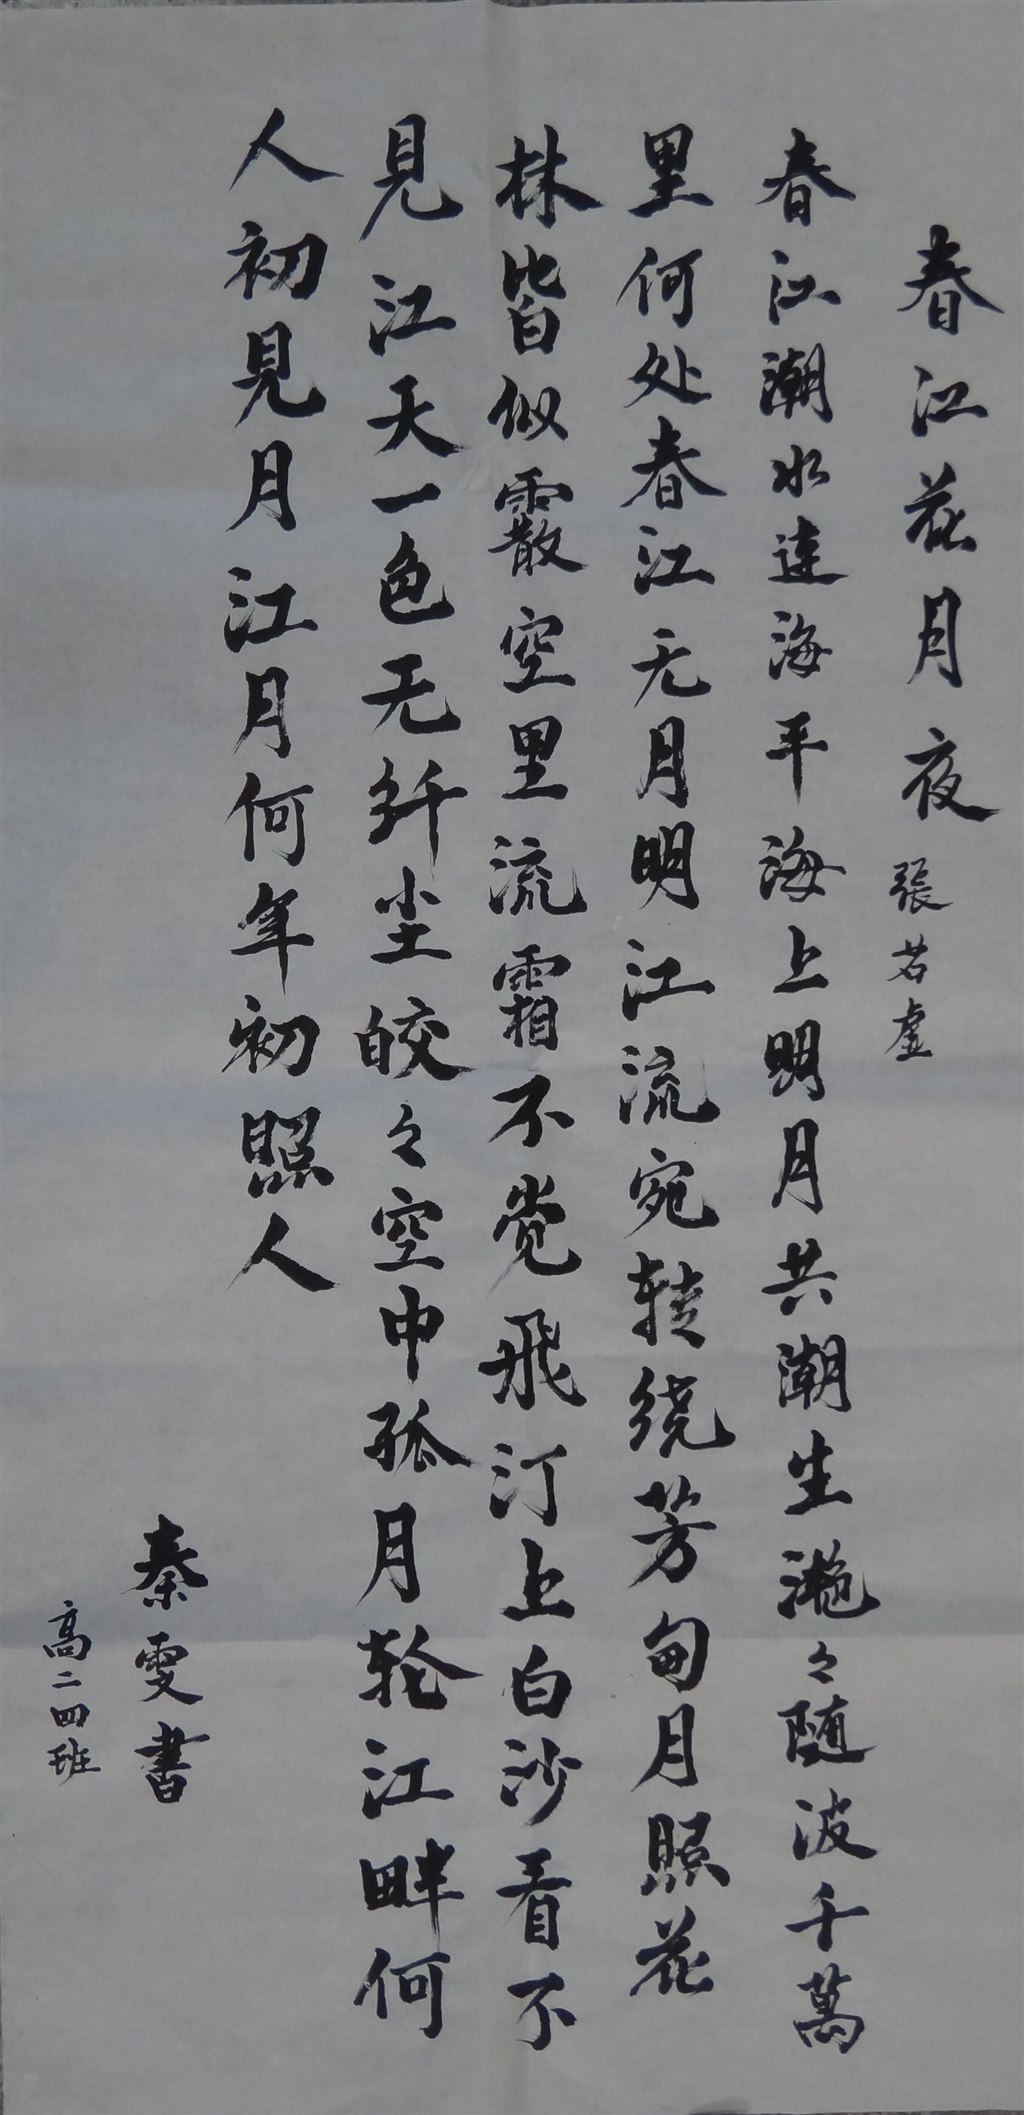 春江花月夜 張若虚
春江潮水连海平海上明月共潮生滟々随波千萬
里何处春江无月明江流宛转绕芳甸月照花
林皆似霰空里流霜不觉飛汀上白沙看不
見江天一色无纤尘皎々空中孤月轮江畔何
人初見月江月何年初照人
秦雯書
高二四班